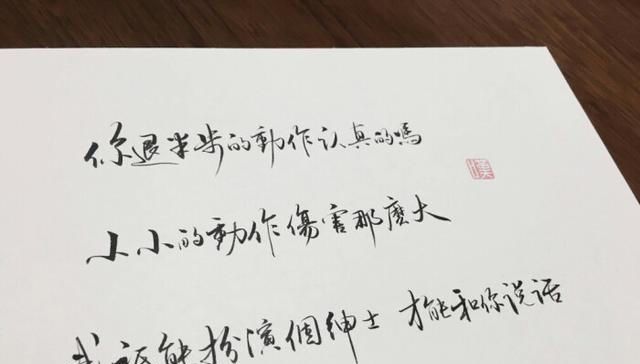 你退半步的動作认真的嗎
小小的動作傷害那麼大
我只能扮演個紳士 才能和你说话